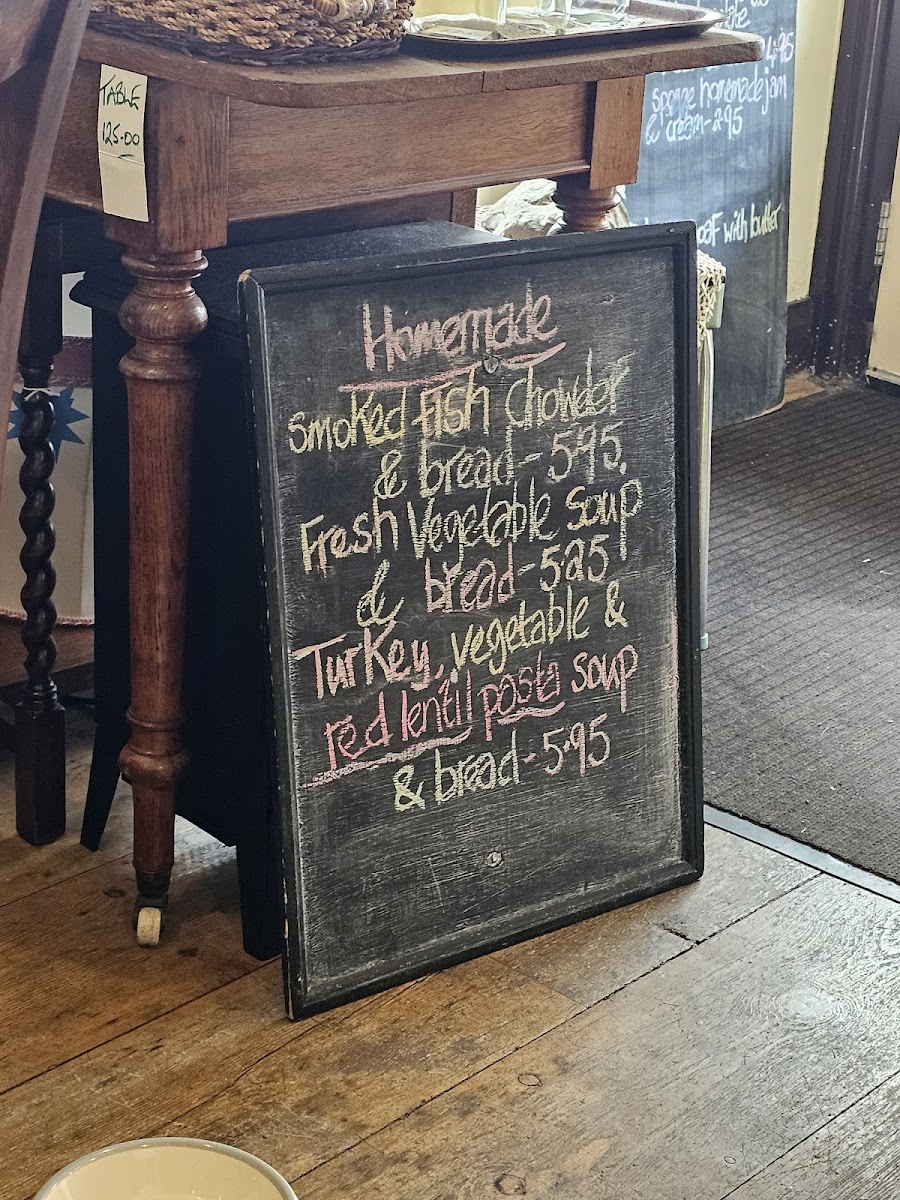 TABLE
125-00
4.95
sponge homemade jam
& cream-2.95
with butter
Homemade
Smoked fish Chowder
& bread - 5.95.
Fresh Vegetable Soup
& bread - 5.25
Turkey, vegetable &
red lentil pasta soup
& bread - 5.95